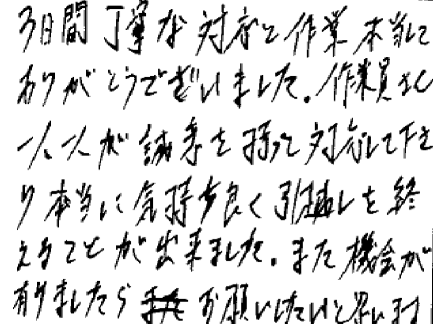 3日間丁寧な対応と作業本当に
ありがとうございました。作業員さん
一人一人が誠意を持って対応して下さ
り本当に気持ち良く引越しを終
えることが出来ました。また機会が
有りましたらお願いしたいと思います